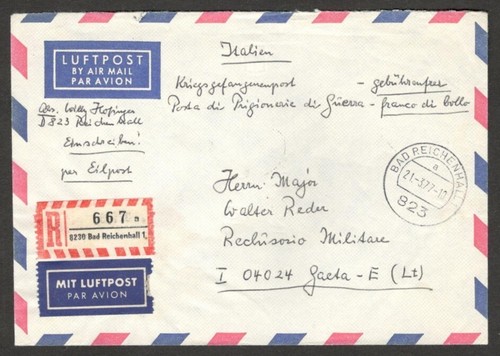 LUFTPOST
BY AIR MAIL
PAR AVION
Italien
Kriegsgefangenenpost - gebührenfrei
Posta di Prigionerie di Guerra - franco di bollo
Abs. Willy Hofinger
D 823 Reichenhall
Einschreiben!
per Eilpost
BAD REICHENHALL
a
21.-3.77.-10
823
Herrn Major
Walter Reder
Reclusorio Militare
I 04024 Gaeta - E (Lt)
R
667 a
8230 Bad Reichenhall 1
MIT LUFTPOST
PAR AVION